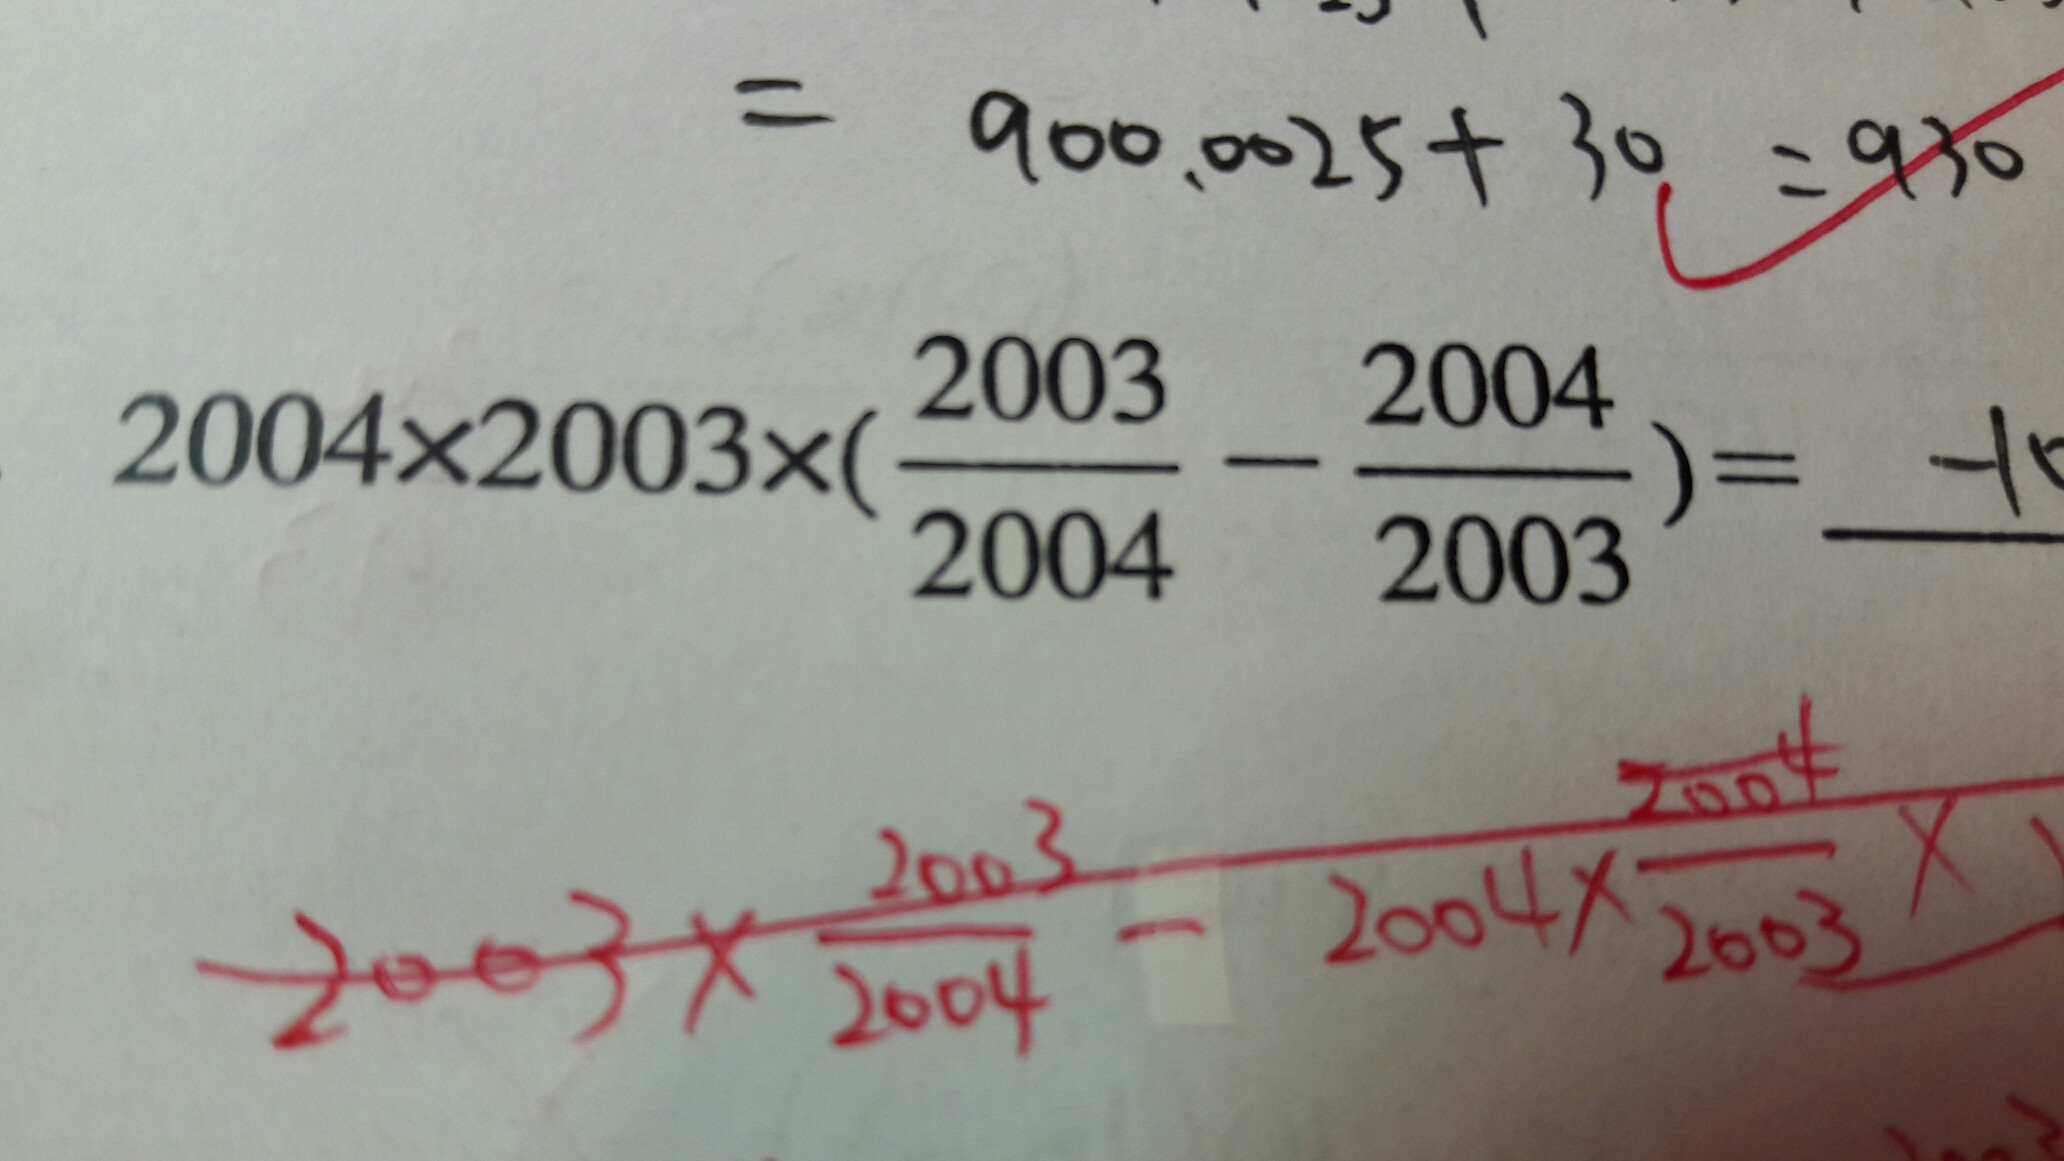 = 900.0025 + 30 = 930
2004×2003×(2003/2004 − 2004/2003)=
2003 × 2003/2004 − 2004 × 2004/2003 ×